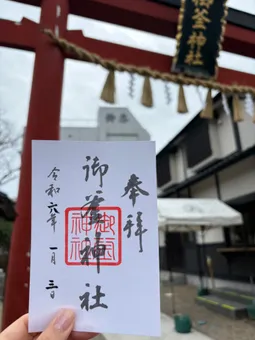 釜神社
奉拝
御釜神社
御釜
神社
令和六年 一月 三日